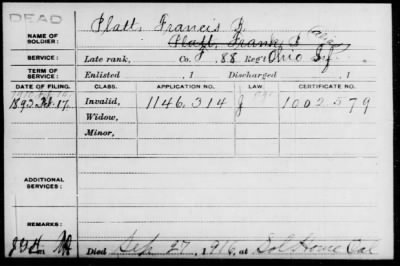 DEAD
NAME OF SOLDIER: Platt, Francis F.
Platt, Frank F (alias)
SERVICE: Late rank, Co. F, 88 Reg't Ohio Inf
TERM OF SERVICE: Enlisted , 1 Discharged , 1
DATE OF FILING. CLASS. APPLICATION NO. LAW. CERTIFICATE NO.
1893 17. Invalid, 1146.314 1002.579
Widow,
Minor,
ADDITIONAL SERVICES:
REMARKS:
Died Sep. 27, 1916, at Sol Home Cal